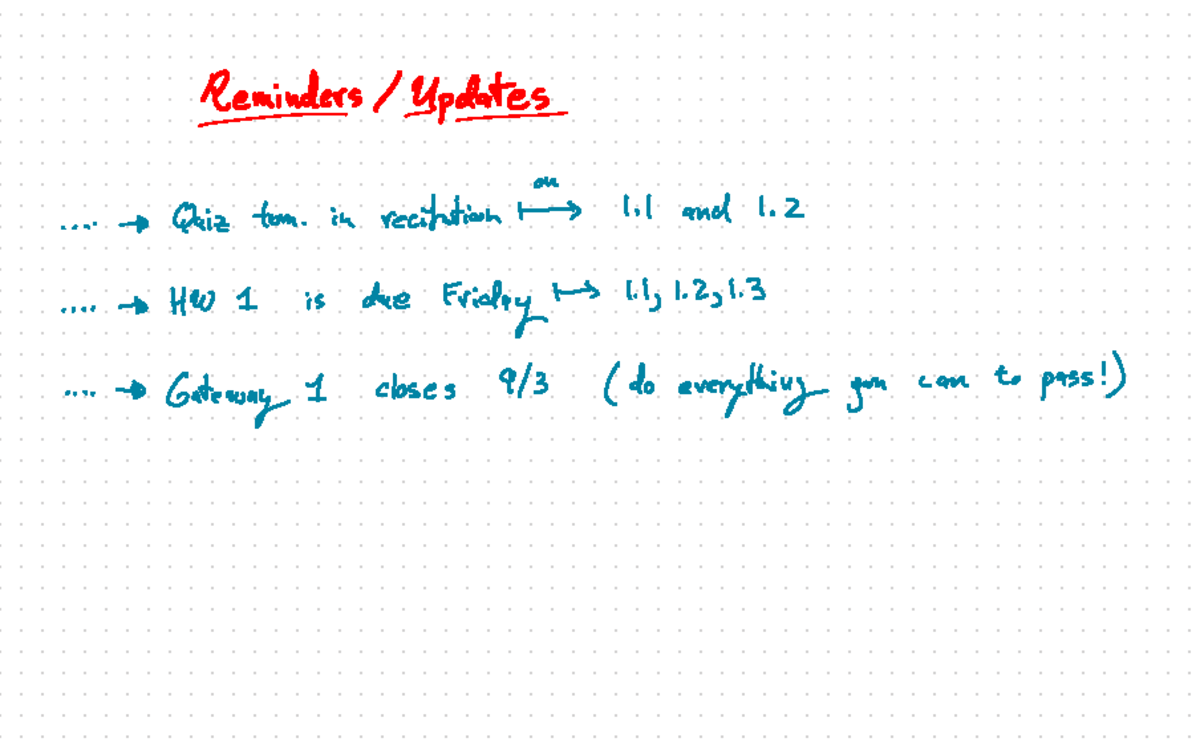 Reminders / Updates
.... → Quiz tom. in recitation ↦ on 1.1 and 1.2
.... → HW 1 is due Friday ↦ 1.1, 1.2, 1.3
.... → Gateway 1 closes 9/3 (do everything you can to pass!)